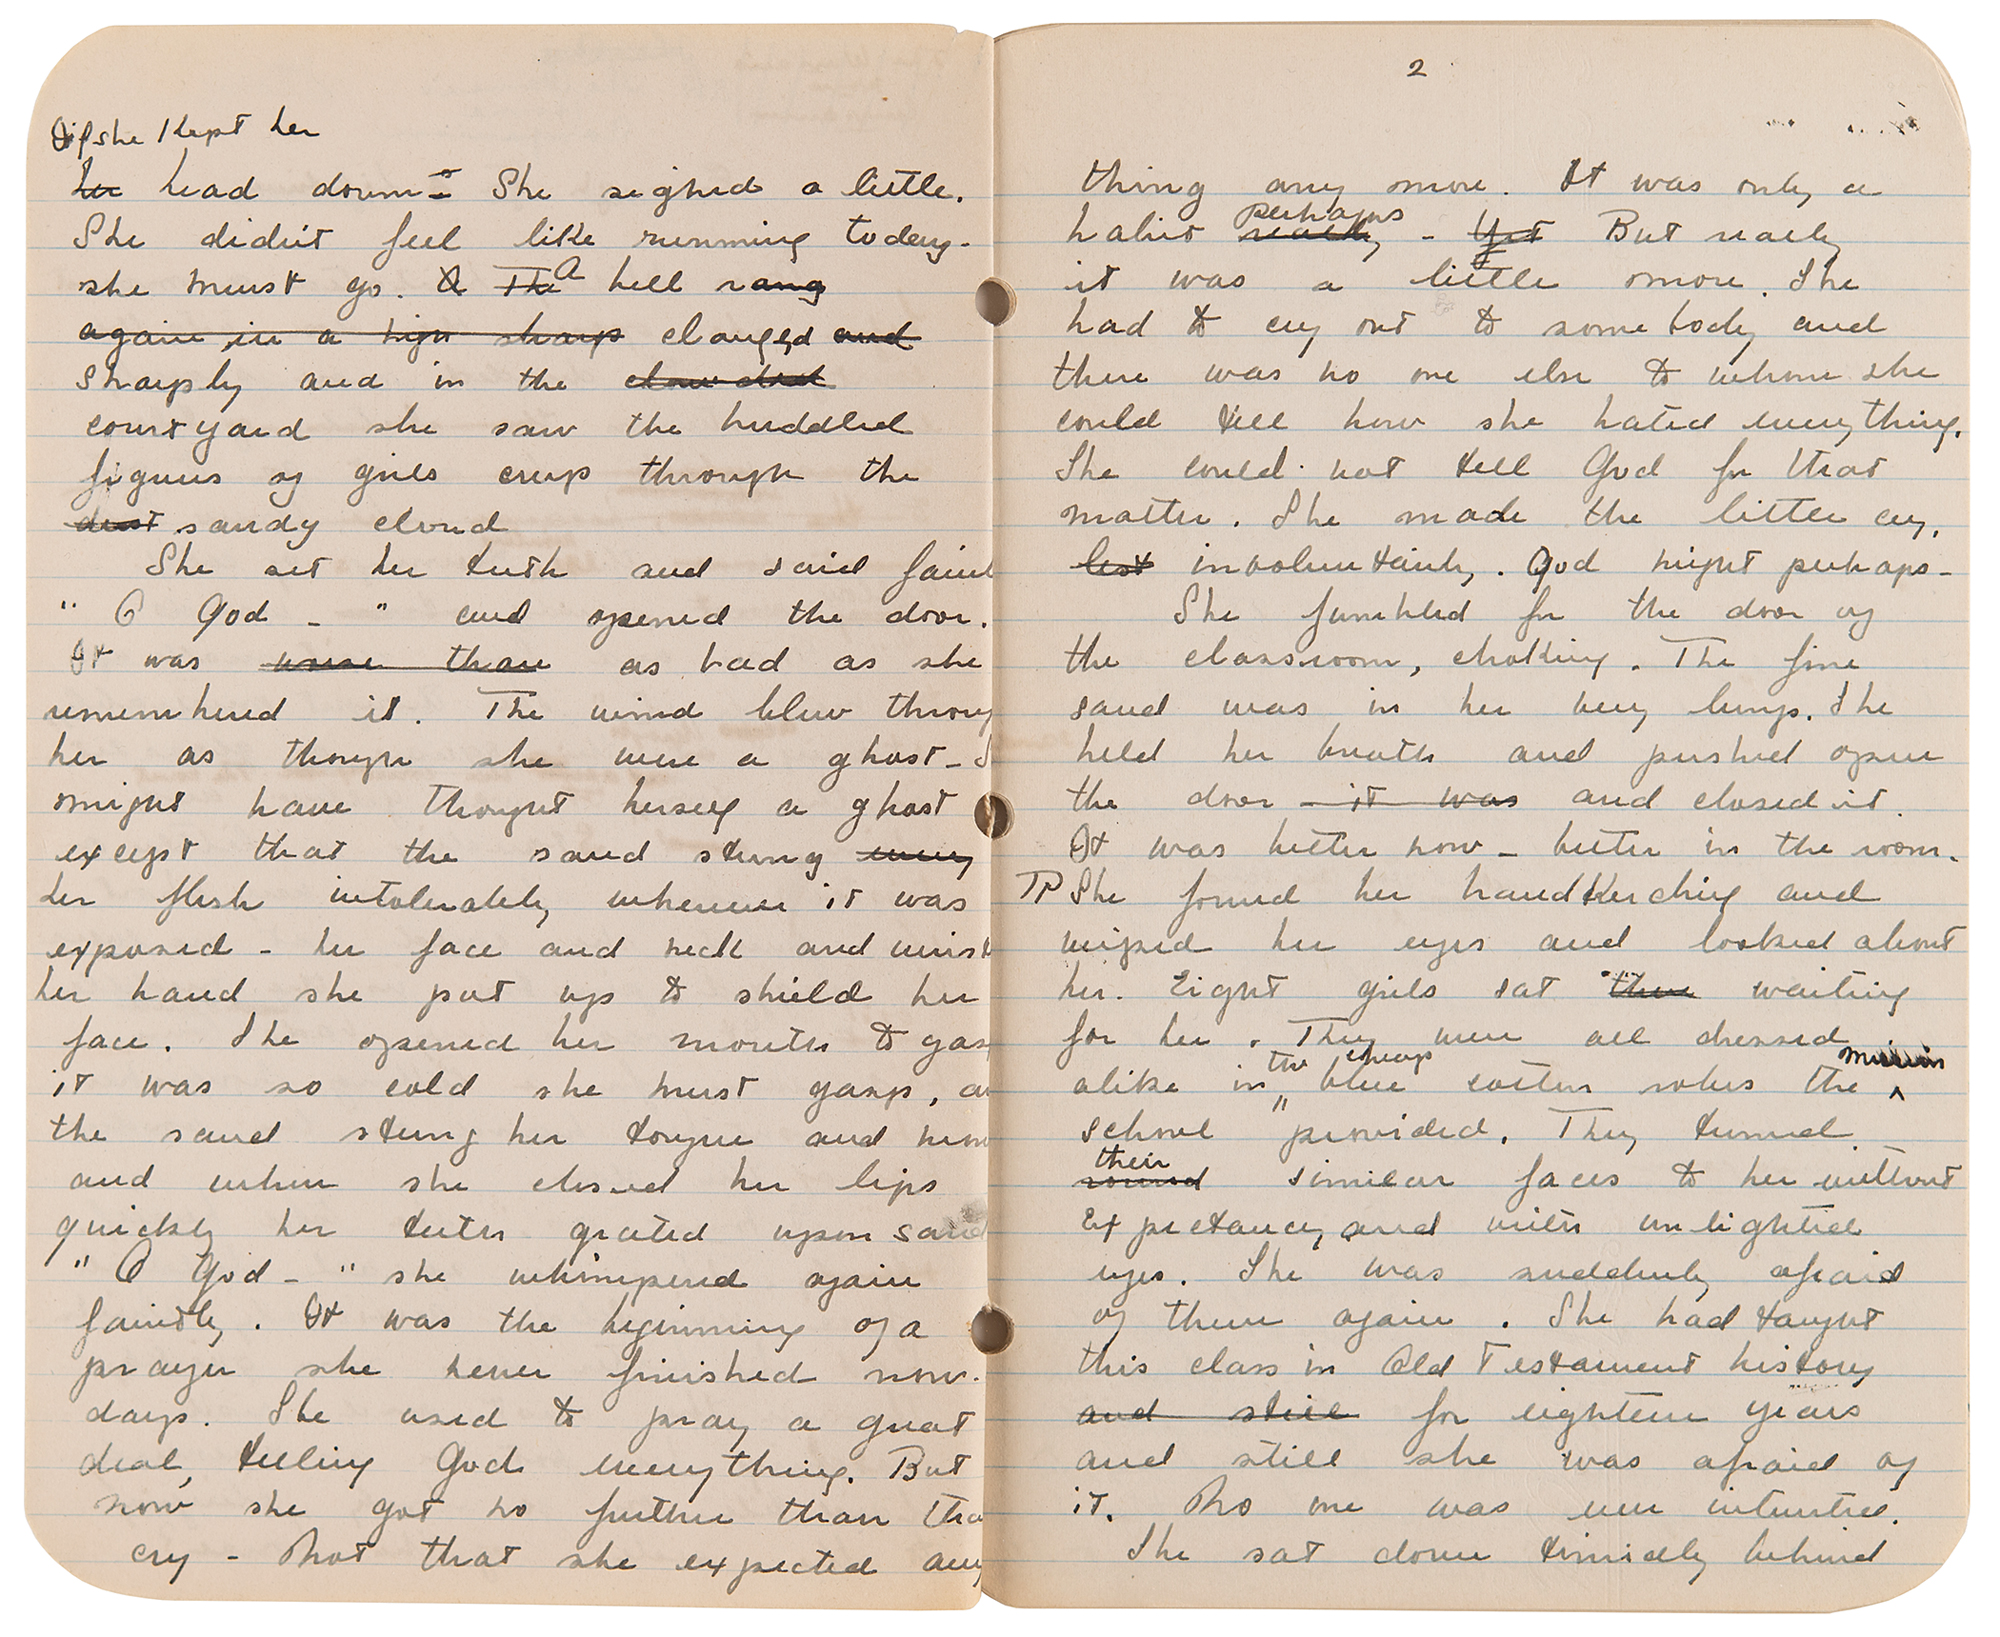 if she kept her
her head down – She sighed a little.
She didn't feel like running today–
she must go. A The A bell rang
again in a high sharp clanged and
sharply and in the
courtyard she saw the huddled
figures of girls creep through the
dust sandy cloud
She set her teeth and said faint
" O God – " and opened the door.
It was worse than as bad as she
remembered it. The wind blew throug
her as though she were a ghost – S
might have thought herself a ghost
except that the sand stung every
her flesh intolerably wherever it was
exposed – her face and neck and wrist
her hand she put up to shield her
face. She opened her mouth to gas
it was so cold she must gasp, an
the sand stung her tongue and now
and when she closed her lips
quickly her teeth grated upon sand
" O God – " she whimpered again
faintly. It was the beginning of a
prayer she never finished now-
days. She used to pray a great
deal, telling God everything. But
now she got no further than tha
cry – Not that she expected any
2
thing any more. It was only a
perhaps
habit really – Yet But really
it was a little more. She
had to cry out to somebody and
there was no one else to whom she
could tell how she hated everything.
She could not tell God for that
matter. She made the little cry,
lest involuntarily. God might perhaps –
She fumbled for the door of
the classroom, choking. The fine
sand was in her very lungs. She
held her breath and pushed open
the door – it was and closed it.
It was better now – better in the room.
TP She found her handkerchief and
wiped her eyes and looked about
her. Eight girls sat there waiting
for her. They were all dressed
the cheap mission
alike in blue cotton robes the
school provided. They turned
their
round similar faces to her without
expectancy and with unlighted
eyes. She was suddenly afraid
of them again. She had taught
this class in Old Testament history
and still for eighteen years
and still she was afraid of
it. No one was ever interested.
She sat down timidly behind